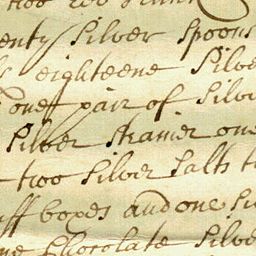 two
enty Silver Spoons
eighteene Silve
one pair of Silve
Silver Strainer one
two Silver Salts t
uff boxes and one Si
ne Chocolate Silve